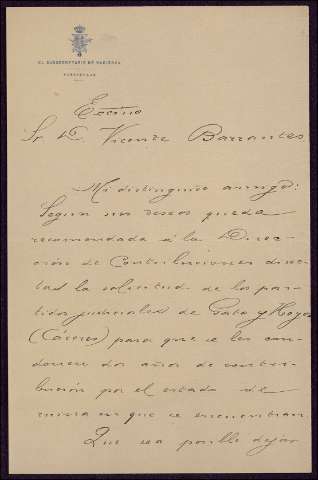 EL SUBSECRETARIO DE HACIENDA
PARTICULAR
Excmo
Sr. D. Vicente Barrantes
Mi distinguido amigo:
Segun sus deseos queda
recomendada á la Direc-
ción de Contribuciones direc-
tas la solicitud de los par-
tidos judiciales de Gata y Hoyos
(Cáceres) para que se les con-
donen dos años de contri-
bución por el estado de
ruina en que se encuentran.
Que sea posible dejar